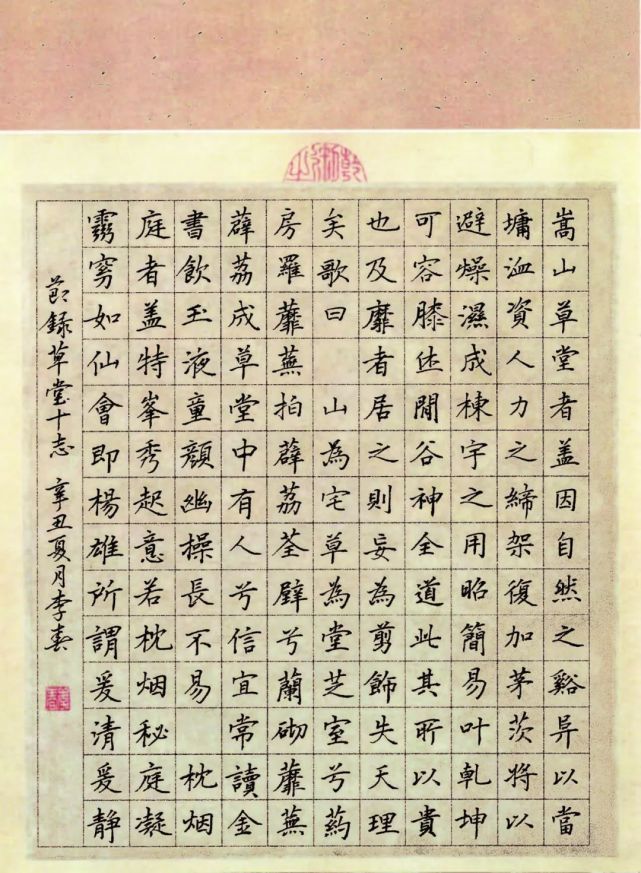 嵩山草堂者盖因自然之谿异以當
墉洫資人力之締架復加茅茨将以
避燥濕成棟宇之用昭簡易叶乹坤
可容膝休閒谷神全道此其所以貴
也及靡者居之則妄為剪飾失天理
矣歌曰 山為宅草為堂芝室兮葯
房羅蘼蕪拍薜荔荃壁兮蘭砌蘼蕪
薜荔成草堂中有人兮信宜常讀金
書飲玉液童顔幽操長不易 枕烟
庭者盖特峯秀起意若枕烟秘庭凝
窈如仙會即楊雄所謂爰清爰静
節録草堂十志 辛丑夏月李